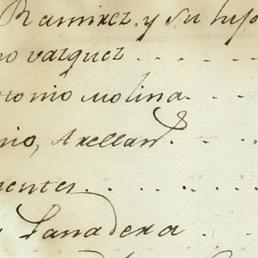 Ramirez. y su hijo
no vazquez . . . .
tonio molina. . .
nio, Arellano . . .
entes. . . . . . .
Panadera . .